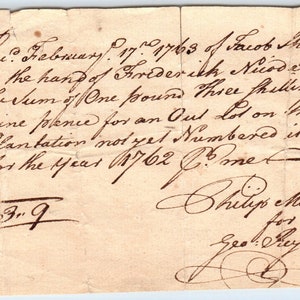 February 17th 1763 of Jacob
the hand of Frederick
Sum of One pound Three Shill
pence for an Out Lot on
plantation not yet Numbered
for the Year 1762 Pr me
Philip
3 " 9
for
Geo: